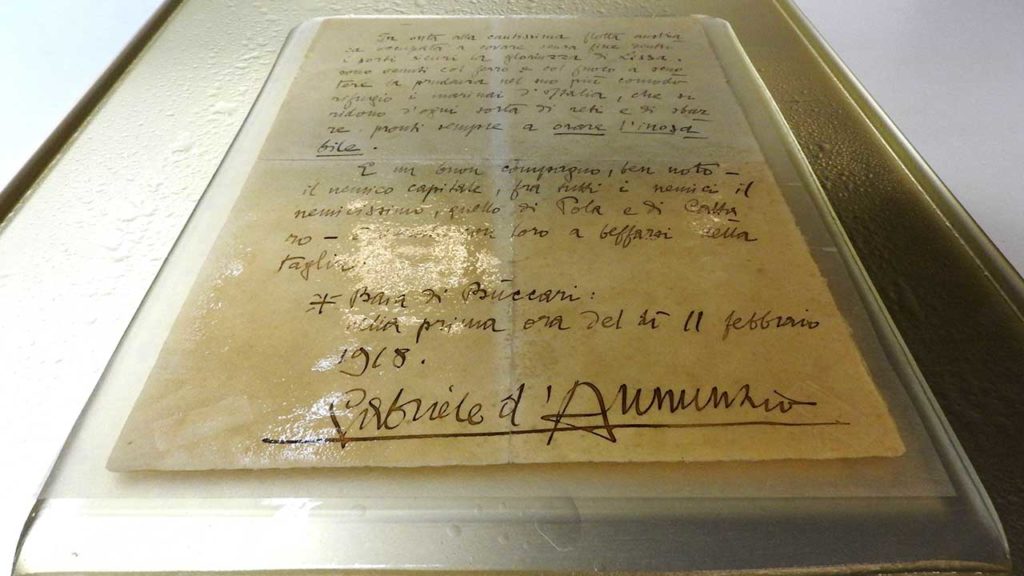 In onta alla cautissima flotta austria
ca occupata a covare senza fine dentro
i porti sicuri la gloriuzza di Lissa,
sono venuti col ferro e col fuoco a scuo
tere la prudenza nel suo più comodo
rifugio i marinai d'Italia, che si
ridono d'ogni sorta di reti e di sbar
re, pronti sempre a osare l'inosa
bile.
E un buon compagno, ben noto –
il nemico capitale, fra tutti i nemici il
nemicissimo, quello di Pola e di Catta
ro – è venuto con loro a beffarsi della
taglia.
* Baia di Bùccari:
nella prima ora del dì 11 febbraio
1918.
Gabriele d'Annunzio